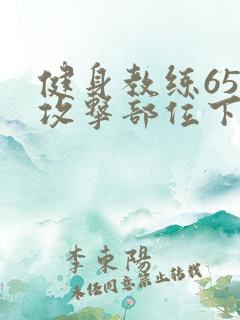 健身教练65
攻擊部位下
李東陽
未任同意禁止转载